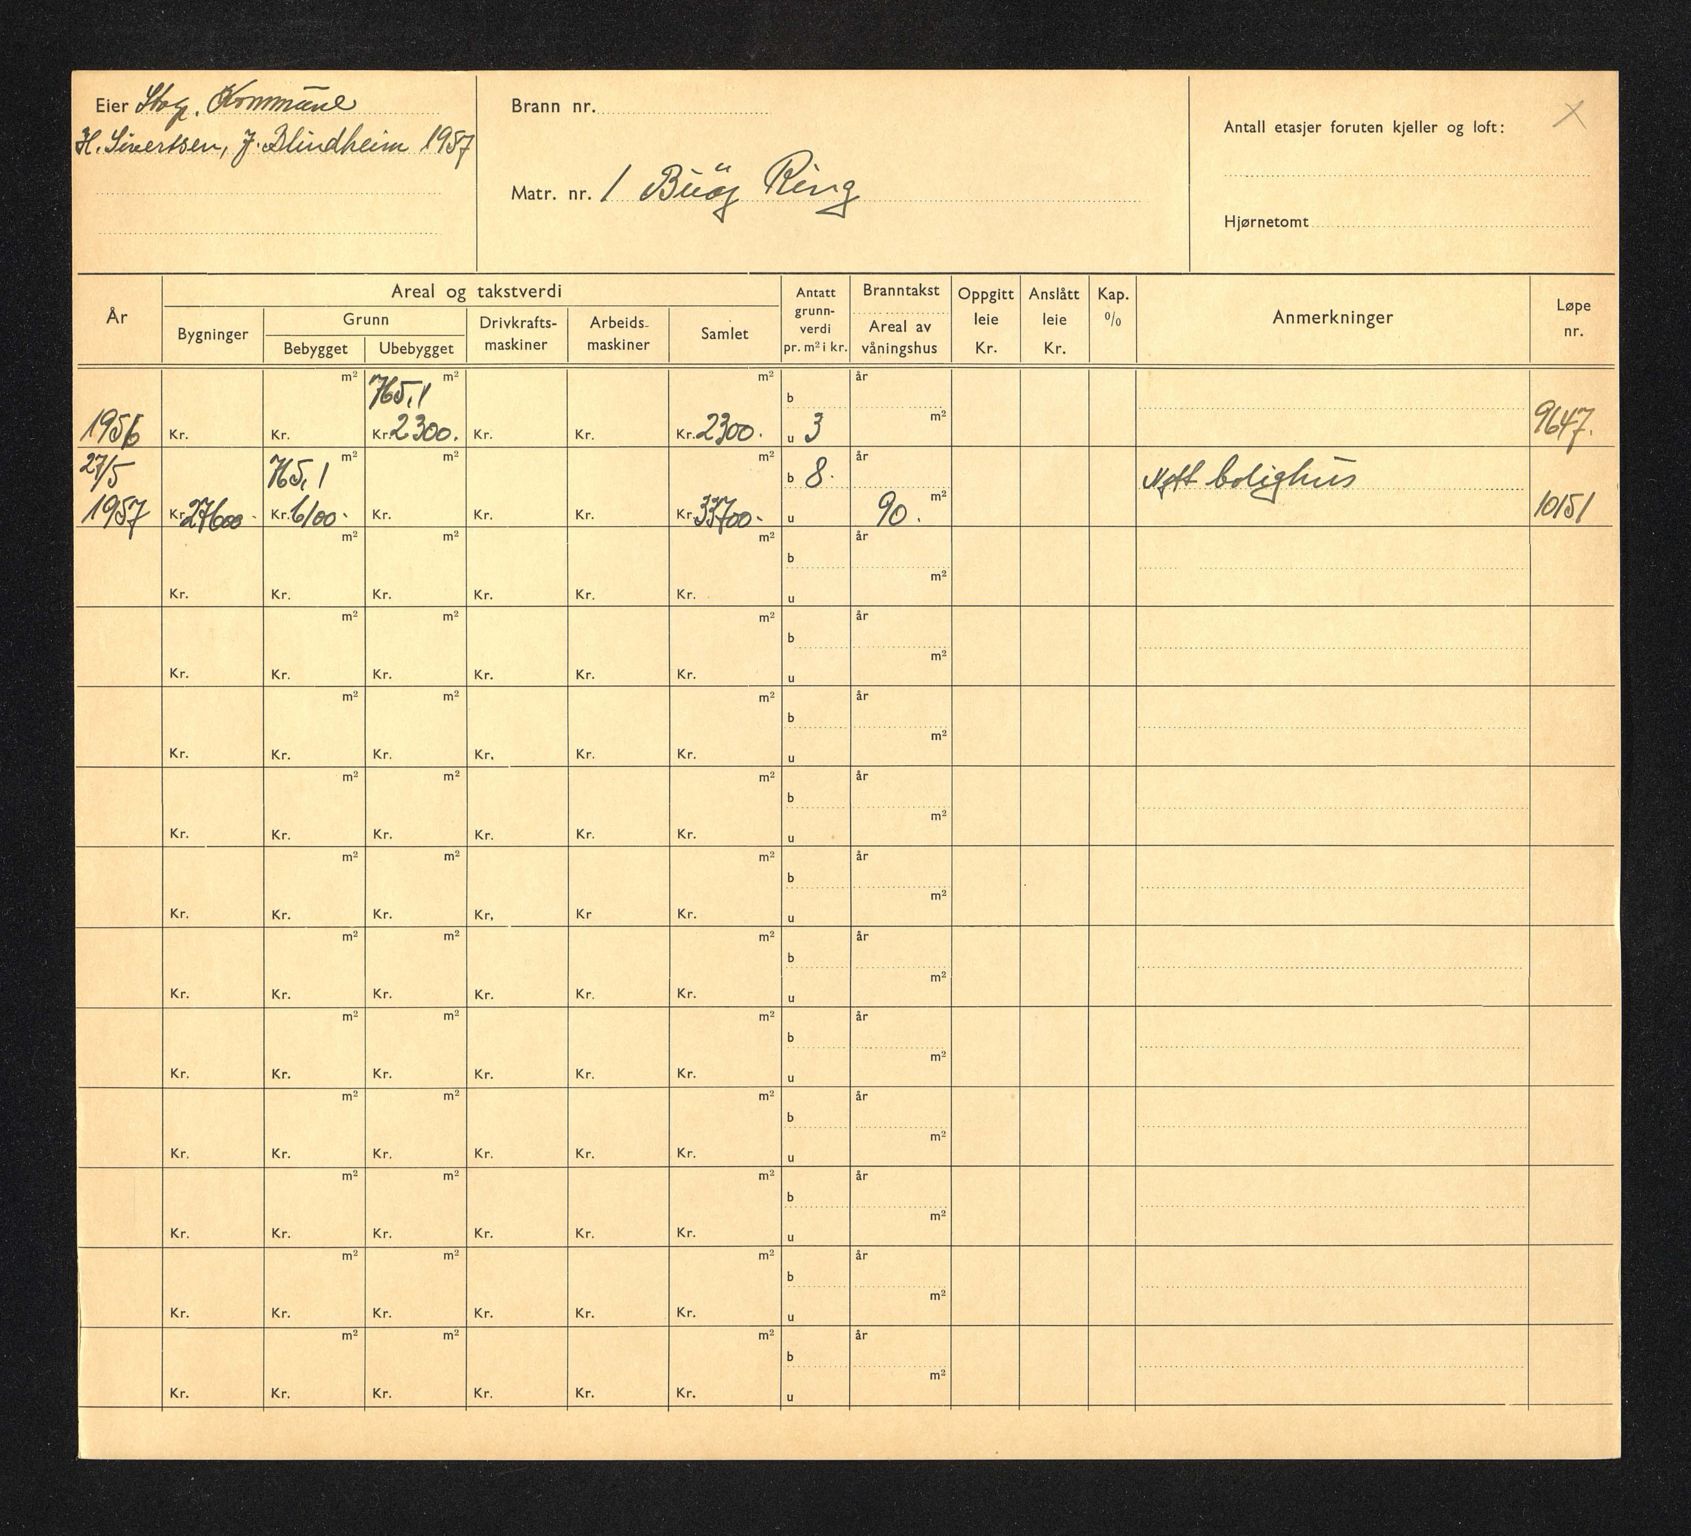 Eier Stvgr. Kommune
H. Sivertsen, J. Blindheim 1957
Brann nr.
Matr. nr. 1 Buøy Ring
Antall etasjer foruten kjeller og loft:
X
Hjørnetomt
År
Areal og takstverdi
Bygninger
Grunn
Bebygget Ubebygget
Drivkrafts-
maskiner
Arbeids-
maskiner
Samlet
Antatt
grunn-
verdi
pr. m² i kr.
Branntakst
Areal av
våningshus
Oppgitt
leie
Kr.
Anslått
leie
Kr.
Kap.
%
Anmerkninger
Løpe
nr.
m² 765,1 m² m² b år
1956 Kr. Kr. Kr. 2300. Kr. Kr. Kr. 2300. u 3 m² 9647.
27/5 765,1 m² m² m² b 8. år Nytt bolighus
1957 Kr. 27600.- Kr. 6100.- Kr. Kr. Kr. Kr. 33700.- u 90. m² 10151
m² m² m² b år
Kr. Kr. Kr. Kr. Kr. Kr. u m²
m² m² m² b år
Kr. Kr. Kr. Kr. Kr. Kr. u m²
m² m² m² b år
Kr. Kr. Kr. Kr. Kr. Kr. u m²
m² m² m² b år
Kr. Kr. Kr. Kr. Kr. Kr. u m²
m² m² m² b år
Kr. Kr. Kr. Kr. Kr Kr. u m²
m² m² m² b år
Kr. Kr. Kr. Kr. Kr. Kr. u m²
m² m² m² b år
Kr. Kr. Kr. Kr. Kr. Kr. u m²
m² m² m² b år
Kr. Kr. Kr. Kr. Kr. Kr. u m²
m² m² m² b år
Kr. Kr. Kr. Kr. Kr. Kr. u m²
m² m² m² b år
Kr. Kr. Kr. Kr. Kr. Kr. u m²
m² m² m² b år
Kr. Kr. Kr. Kr. Kr. Kr. u m²